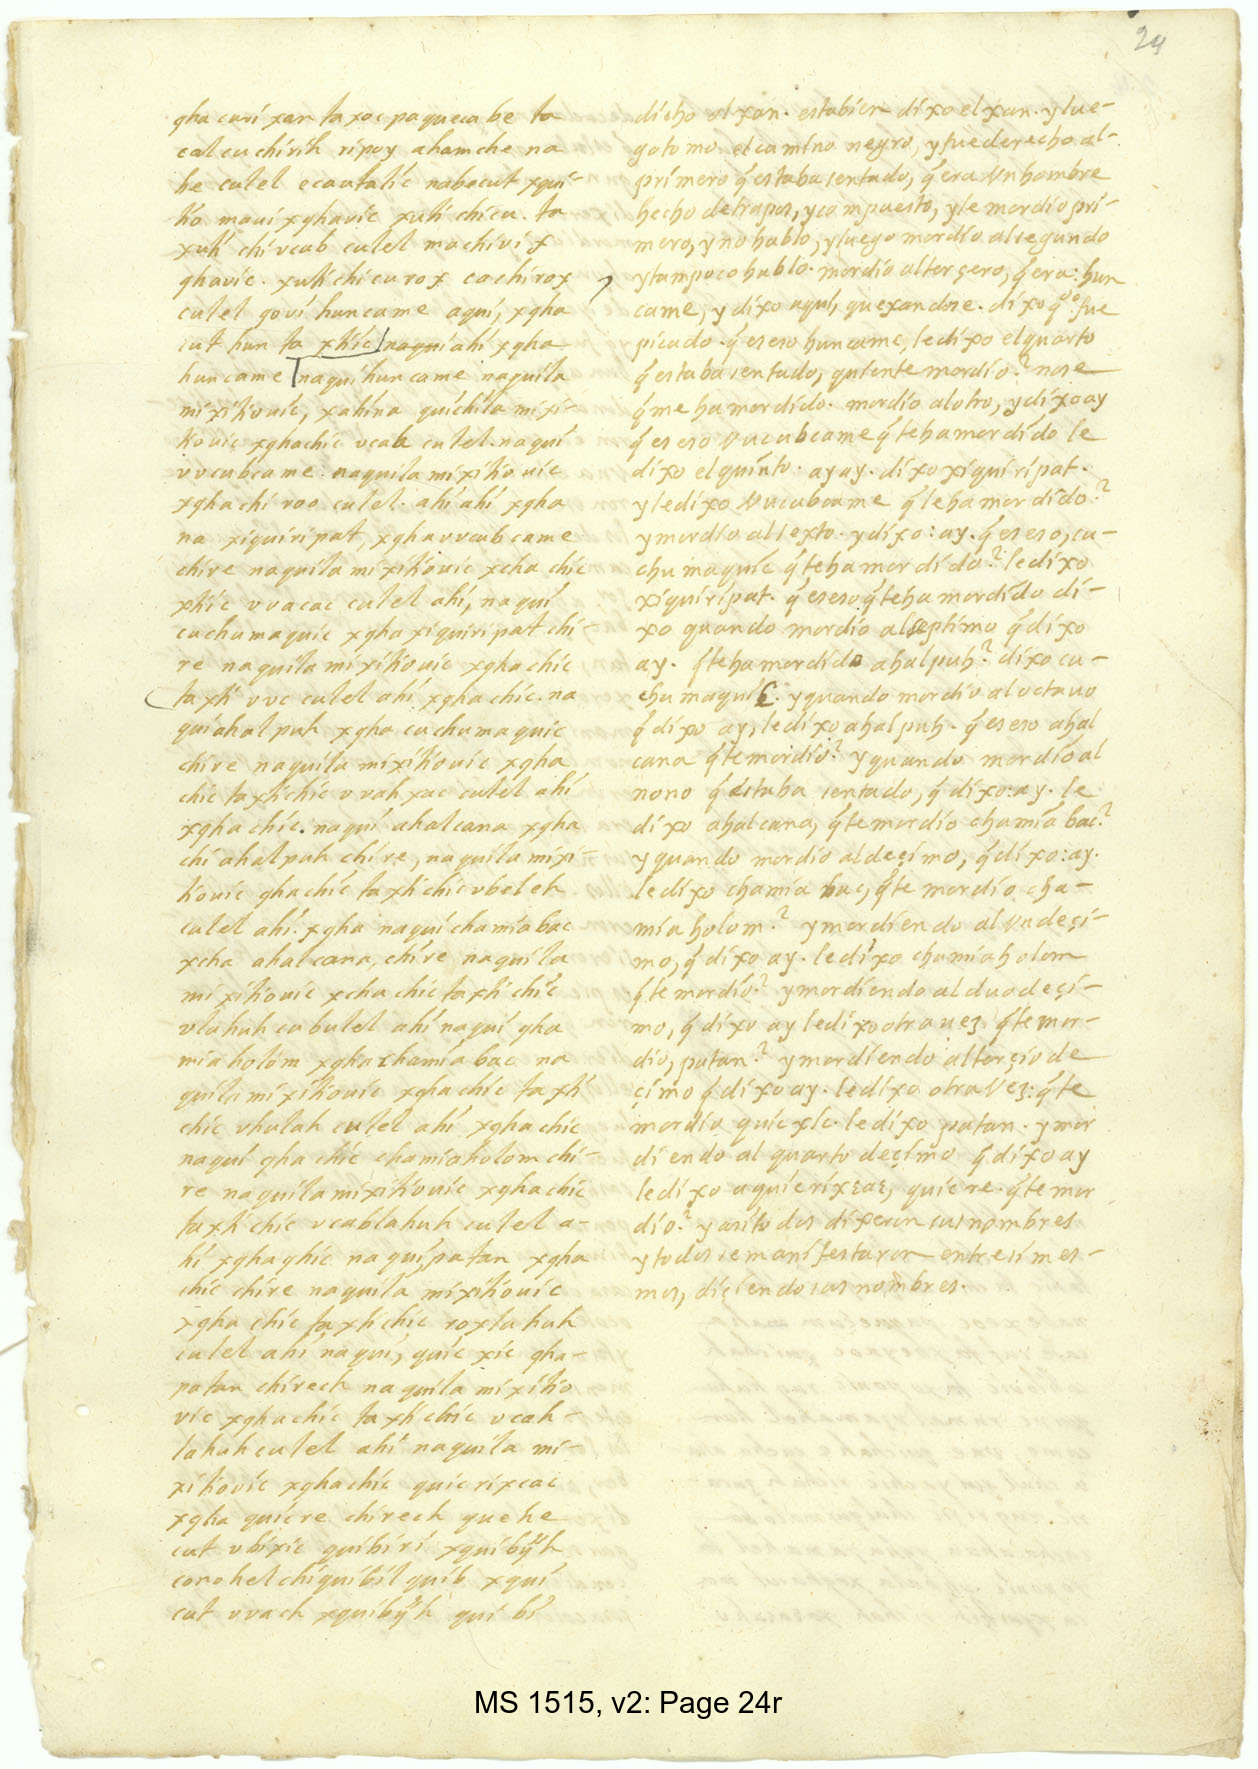 24
gha curi xan ta xoc paqueca be ta
cat cu chirih ripoy ahamche na
be culel ecautalic nabecut xqui-
tio maui xghavic xuti chicu. ta
xuti chi vcab culel machivi x
ghavic. xuti chicu rox cachirox
culel govi huncame aqui, xgha
cut hun ta xtíic naqui ahí xgha
huncame naqui huncame naquila
mixitiouic, xahína quichila mixi-
tiouic xghachic vcab culel. naqui
vvcubcame. naquila mixitiouic
xghachi roo culel. ahí ahí xgha
na xiquiripat, xgha vvcub came
chire naquila mixitiouic xcha chic
xtiic vvacac culel ahí, naqui
cuchumaquic xgha xiquiripat chi-
re naquila mixitiouic xghachic
taxti vvc culel ahí xghachic. na
qui ahalpuh xgha cuchumaquic
chire naquila mixitiouic xgha
chic taxtichic vvahxac culel ahí
xgha chic. naqui ahalcana xgha
chi ahalpuh chire, naquila mixi-
tiouic ghachic taxtichic vbeleh
culel ahí. xgha naqui chamiabac
xcha ahalcana, chire naquila
mixitiouic xchachic taxti chic
vlahuh cabulel ahí naqui gha
miaholom xgha chamiabac na
quila mixitiouic xghachic ta xti
chic vhulah culel ahí xghachic
naqui gha chic chamiaholom chi-
re naquila mixitiouic xghachic
taxti chic vcablahuh culel a-
hí xghaghic naqui, patan xgha
chic chire naquila mixitiouic
xgha chic taxtichic roxlahuh
culel ahí naqui, quic xic gha-
patan chirech naquila mixitio
vic xghachic taxtichic vcah-
lahuh culel ahí naquila mi-
xitiouic xghachic quicrixcac
xgha quicre chirech quehe
cut vbixic quibi ri xquibÿh
conohel chiquibil quib xqui
cut vvach xquibÿh qui bi
dicho al xan. estabien dixo el xan. y lue-
go tomo el camino negro, y fue derecho al-
primero q̃ estaba sentado, q̃ era Vn hombre
hecho de trapos, y compuesto, y le mordio pri-
mero, y no hablo, y luego mordio al segundo
y tampoco hablo. mordio al terçero, q̃ era: hun
came, y dixo aqui, quexandose. dixo q̃ fue
picado. q̃ es eso huncame, le dixo el quarto
q̃ estaba sentado, quiente mordio? nose
q̃ me ha mordido. mordio al otro, y dixo ay
q̃ es eso Vucubcame q̃ te ha mordido le
dixo el quinto. ay ay. dixo xiquiripat.
y le dixo Vucubcame q̃ le ha mordido?
y mordio al sexto. y dixo: ay. q̃ es eso, cu-
chumaquic q̃ te ha mordido? le dixo
xiquiripat. q̃ es eso q̃ te ha mordido di-
xo quando mordio al septimo q̃ dixo
ay. q̃ te ha mordido ahalpuh? dixo cu-
chumaquic. y quando mordio al octauo
q̃ dixo ay, le dixo ahalpuh. q̃ es eso ahal
cana q̃ te mordio? y quando mordio al
nono q̃ estaba sentado, q̃ dixo: ay. le
dixo ahalcana, q̃ te mordio chamiabac?
y quando mordio al deçimo, q̃ dixo: ay.
le dixo chamia bac, q̃ te mordio cha-
mia holom? y mordiendo al Vndeçi-
mo, q̃ dixo ay. le dixo chamiaholom
q̃ te mordio? y mordiendo al duodeçi-
mo, q̃ dixo ay le dixo otra uez. q̃ te mor-
dio, patan? y mordiendo al terçio de
çimo q̃ dixo ay. le dixo otra Vez: q̃ te
mordio quicxic. le dixo patan. y mor
diendo al quarto deçimo q̃ dixo ay
le dixo aquicrixɛaɛ, quicre. q̃ te mor
dio? y asi todos dixeron sus nombres
y todos se manifestaron entre si mes-
mos, diçiendo sus nombres.
MS 1515, v2: Page 24r